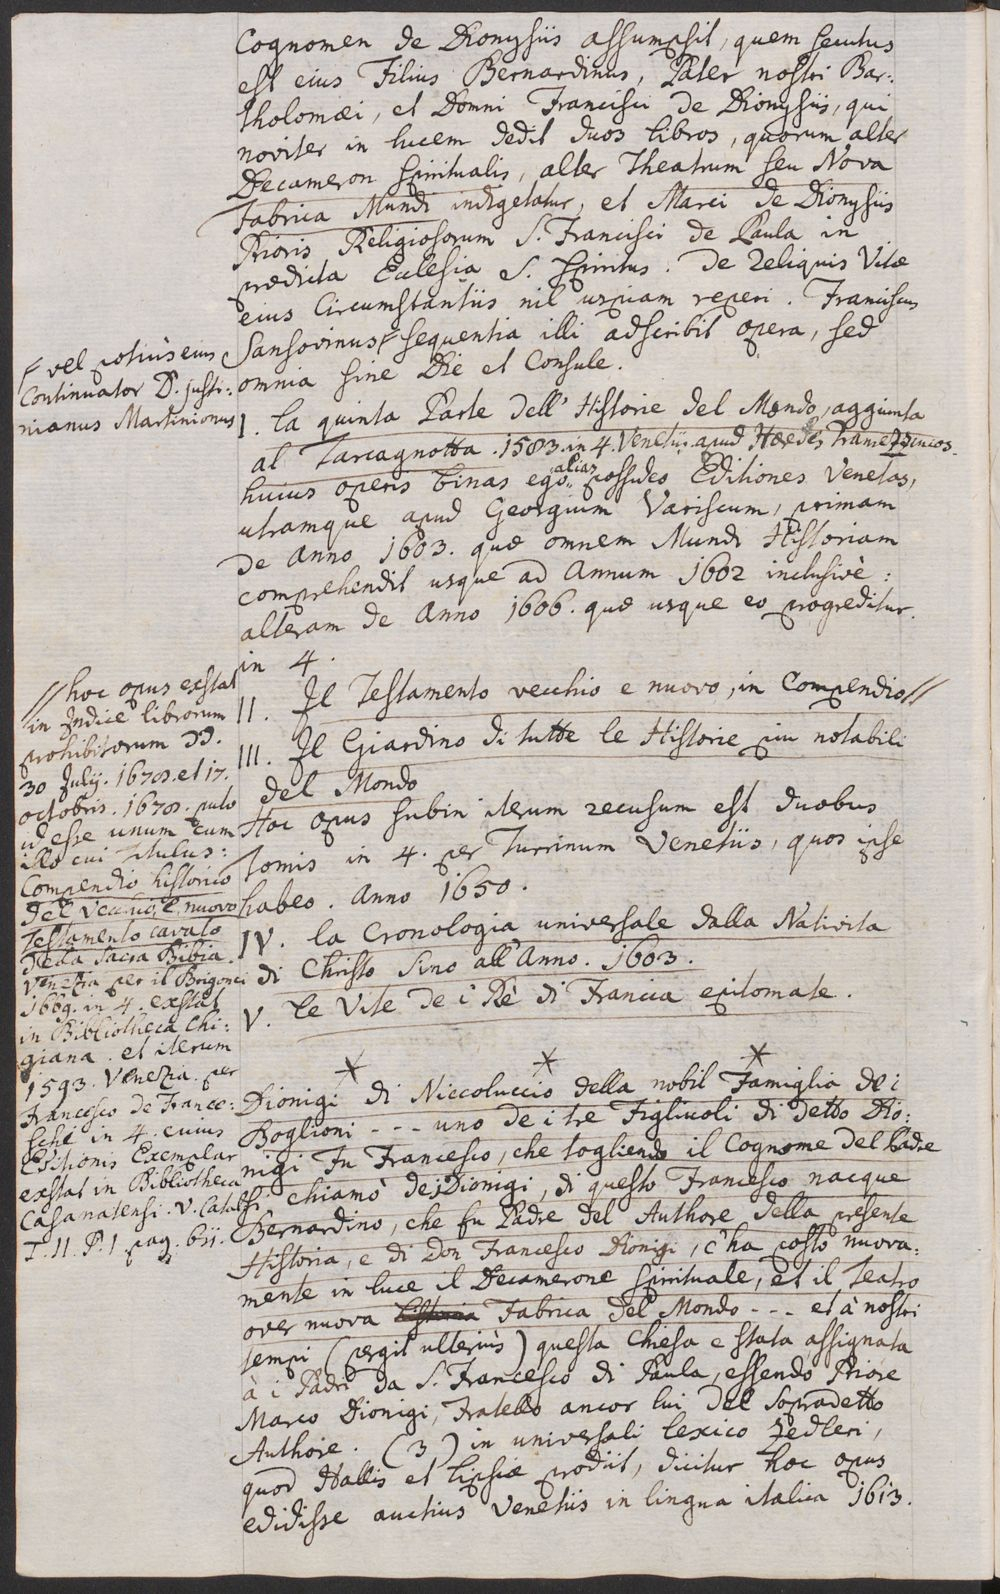 Cognomen de Dionysiis assumpsit, quem secutus
est eius Filius Bernardinus, Pater nostri Bar:
tholomæi, et Domni Francisci de Dionysiis, qui
noviter in lucem dedit duos libros, quorum alter
Decameron spiritualis, alter Theatrum seu Nova
Fabrica Mundi indigetatur, et Marci de Dionysiis
Prioris Religiosorum S. Francisci de Paula in
prædicta Ecclesia S. Spiritus. De reliquis Vitæ
eius Circumstantiis nil uspiam reperi. Franciscus
Sansovinus F sequentia illi adscribit opera, sed
omnia sine Die et Consule.
F vel potius eius
Continuator D. Justi:
nianus Martinionus
I. La quinta Parte dell' Historie del Mondo, aggiunta
al Tarcagnotta. 1583. in 4. Venetiis apud Hæredes
huius operis binas ego alias possideo Editiones Venetas,
utramque apud Georgium Variscum, primam
de Anno 1603. quæ omnem Mundi Historiam
comprehendit usque ad Annum 1602 inclusivè:
alteram de Anno 1606. quæ usque eo progreditur.
in 4.
II. Il Testamento vecchio e nuovo, in Compendio //
III. Il Giardino di tutte le Historie piu notabili
del Mondo
Hoc opus subin iterum recusum est duobus
Tomis in 4. per Turrinum Venetiis, quos ipse
habeo. Anno 1650.
IV. La Cronologia universale dalla Nativita
di Christo sino all' Anno. 1603.
V. Le Vite de i Rè di Francia epitomate.
// hoc opus exstat
in Indice librorum
prohibitorum dd.
30 Julij. 1678. et 17.
octobris. 1678. puto
id esse unum cum
illo cui titulus:
Compendio historico
del vecchio, e nuovo
Testamento cavato
dalla Sacra Bibia.
Venezia per il Brigonci
1669. in 4. exstat
in Bibliotheca Chi:
giana. et iterum
1593. Venezia. per
Francesco de France:
schi in 4. cuius
Editionis Exemplar
exstat in Bibliotheca
Casanatensi. V. Catal.
T. II. P. I pag. 611.
* * *
Dionigi di Niccoluccio della nobil Famiglia dei
Boglioni - - uno de i tre Figliuoli di detto Dio:
nigi fu Francesco, che togliendo il Cognome del Padre
si chiamò dei Dionigi, di questo Francesco nacque
Bernardino, che fu Padre del Authore della presente
Historia, e di Don Francesco Dionigi, c'ha posto nuova:
mente in luce il Decamerone spirituale, et il Teatro
over nuova Fabrica del Mondo - - - et à nostri
tempi (pergit ulterius) questa Chiesa e stata assignata
à i Padri da S. Francesco di Paula, essendo Priore
Marco Dionigi, Fratello ancor lui del sopradetto
Authore. (3) in universali Lexico Zedleri,
quod Hallis et Lipsiæ prodiit, dicitur hoc opus
edidisse auctius Venetiis in lingua italica 1613.